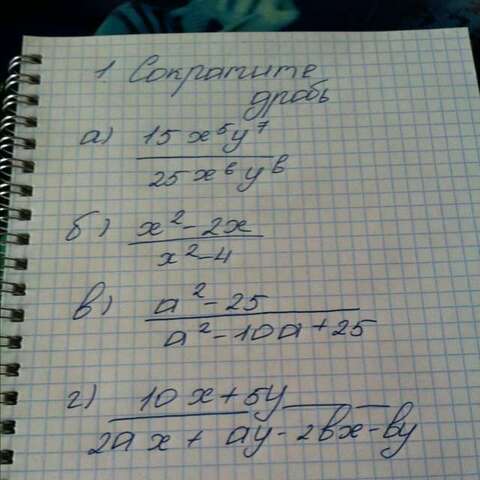 1 Сократите
дробь
а) 15x⁵y⁷
25x⁶y⁶
б) x²-2x
x²-4
в) a²-25
a²-10a+25
г) 10x+5y
2ax+ay-2bx-by